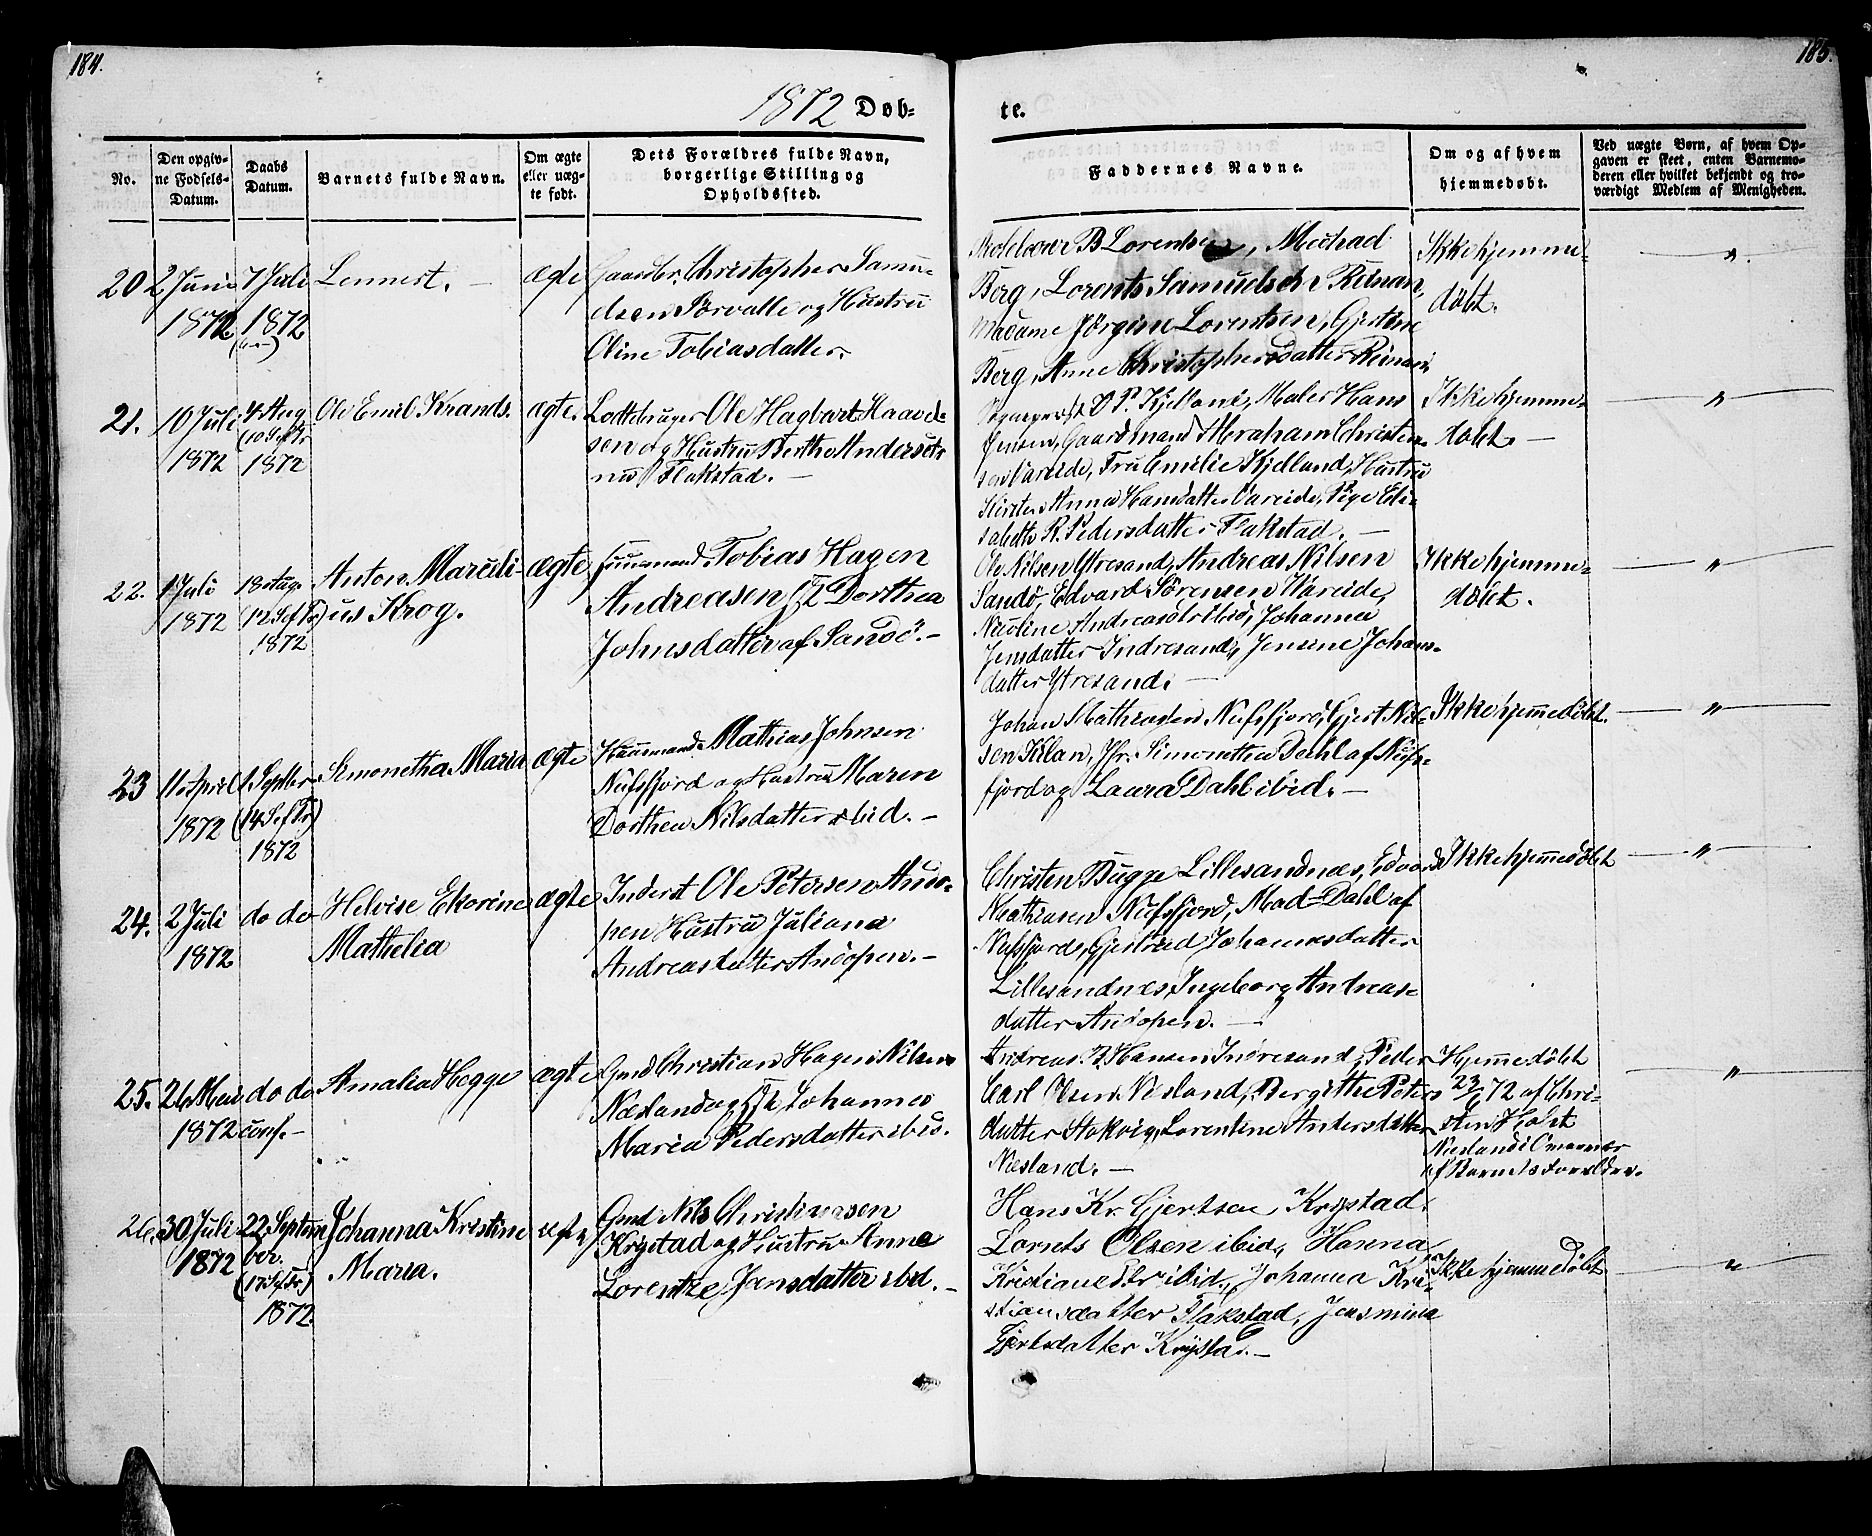 184.
185.
1872 Døb-
te.
No.
Den opgiv-
ne Fødsels-
Datum.
Daabs
Datum.
Barnets fulde Navn.
Om ægte
eller uæg-
te født.
Dets Forældres fulde Navn,
borgerlige Stilling og
Opholdssted.
Faddernes Navne.
Om og af hvem
hjemmedøbt.
Ved uægte Børn, af hvem Op-
gaven er skeet, enten Barnemo-
deren eller hvilket bekjendt og tro-
værdigt Medlem af Menigheden.
20 2 Juni 7 Juli Lennert. — ægte Gaardbr. Christopher Samu-
1872 1872 elsen Sørvalle og Hustru
Oline Tobiasdatter.
B Lorentsen, Michael
Berg, Lorents Samuelsen Reinan,
Madame Jørgine Lorentsen, Gjertine
Berg, Anne Christophersdatter Reinan
Ikke hjemme-
døbt.
— " —
21. 10 Juli 4 Aug Ole Emil Krands. ægte. Ole Hagbart Haavel-
1872 (10 S e f Tr 1872 sen og Hustru Berthe Anderset-
Flakstad. —
O P. Kjelland, Maler Hans
Jensen, Gaardmand Abraham Christen-
sen Vareide, Fru Emilie Kjelland, Hustru
Anna Hansdatter Vareide, Pige Eli-
sabeth R. Pedersdatter Flakstad. —
Ikke hjemme-
døbt. —
— " —
22. 1 Juli 18 Aug. Anton Marcili- ægte Huusmand Tobias Hagen
1872 (12 S e f Tr) us Krog. Andreasen Dorthea
1872 Johnsdatter af Sandø. —
Ole Nilsen Ytresand, Andreas Nilsen
Sandø, Edvard Sørensen Vareide,
Nicoline Andreasdtr ibid, Johanna
Jensdatter Indresand, Jensine Johans-
datter Ytresand. —
Ikke hjemme-
døbt.
— " —
23 11 April 1 Septbr. Simonetha Maria ægte Huusmand Mathias Johnsen
1872 (14 S e f Tr) Nufsfjord og Hustru Maren
1872 Dorthea Nilsdatter ibid. —
Johan Mathiasen Nufsfjord, Gjert Nil-
sen Kilan, Jfr. Simonetha Dahl af Nufs-
fjord og Laura Dahl ibid. —
Ikke hjemmedøbt.
— " —
24. 2 Juli do do Helvise Ekorine ægte Inderst Ole Petersen Andø-
1872 Mathelia pen Hustru Juliana
Andreasdatter Andøpen. —
Christen Bugge Lillesandnæs, Edvard
Mathiasen Nufsfjord, Mad. Dahl af
Nufsfjord, Gjertrud Johannesdatter
Lillesandnæs, Ingeborg Andreas-
datter Andøpen. —
Ikke hjemmedøbt
— " —
25. 26 Mai do do Amalia Hegge ægte Gmd Christian Hagen Nilsen
1872 conf. — Næsland og Johanna
Maria Pedersdatter ibid.
Andreas P. Hansen Indresand, Peder
Carl Olsen Næsland, Bergitthe Peters
datter Stokvig, Lorentine Andersdatter
Næsland. —
Hjemmedøbt
23/6 72 af Chri-
sten Holst
Næsland i Overvær
af Barnets Forældre.
— " —
26. 30 Juli 22 Septem Johanna Kristine ægte Gmd Nils Christiansen
1872 ber. Maria. Krystad og Hustru Anna
(17 S e f Tr) Lorentze Jansdatter ibid. —
1872.
Hans Kr Gjertsen Krystad.
Lornts Olsen ibid, Hanna
Kristiansdtr ibid, Johanna Kri-
stiansdatter Flakstad, Jensmina
Gjertsdatter Krystad. —
Ikke hjemmedøbt.
— " —